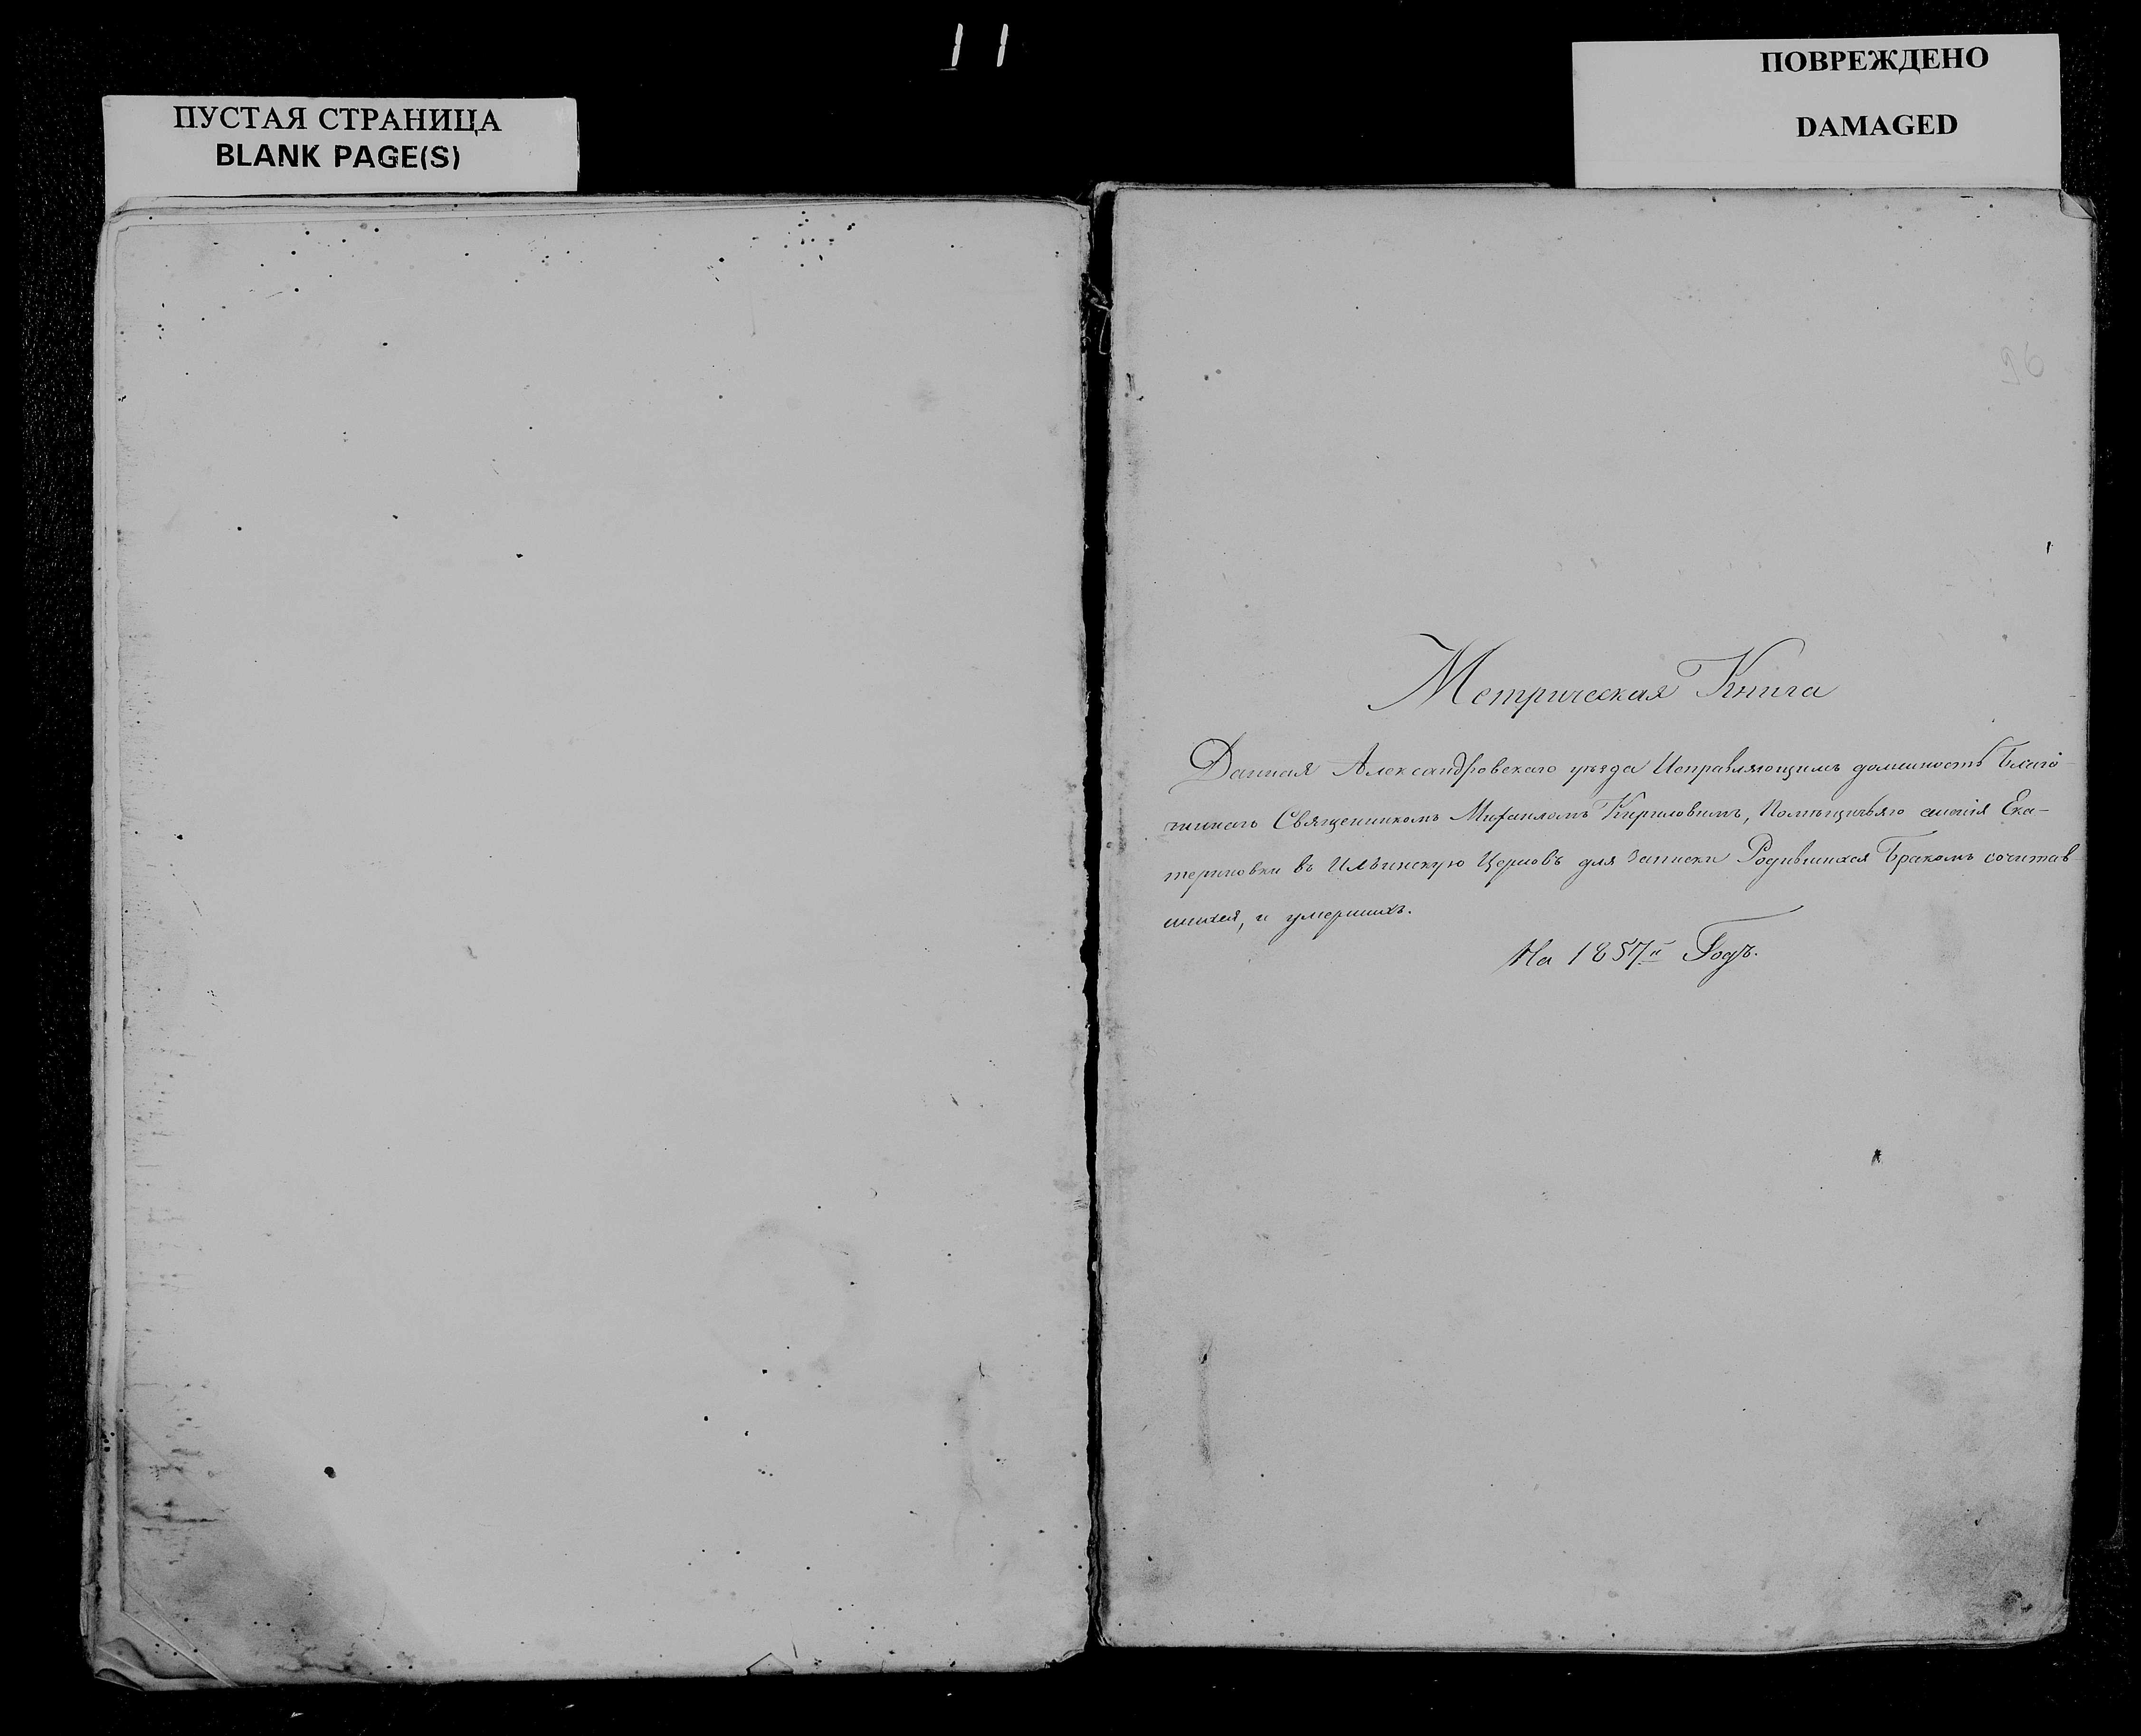 11
ПУСТАЯ СТРАНИЦА
BLANK PAGE(S)
ПОВРЕЖДЕНО
DAMAGED
96
Метрическая Книга
Данная Александровскаго уѣзда Исправляющимъ должность Благо-
чинаго Священникомъ Михаиломъ Кириловымъ, Помѣщичьяго имѣнія Ека-
териновки въ Ильинскую Церковь для записки Родившихся Бракомъ сочитав
шихся, и умершихъ.
На 1857й Годъ.